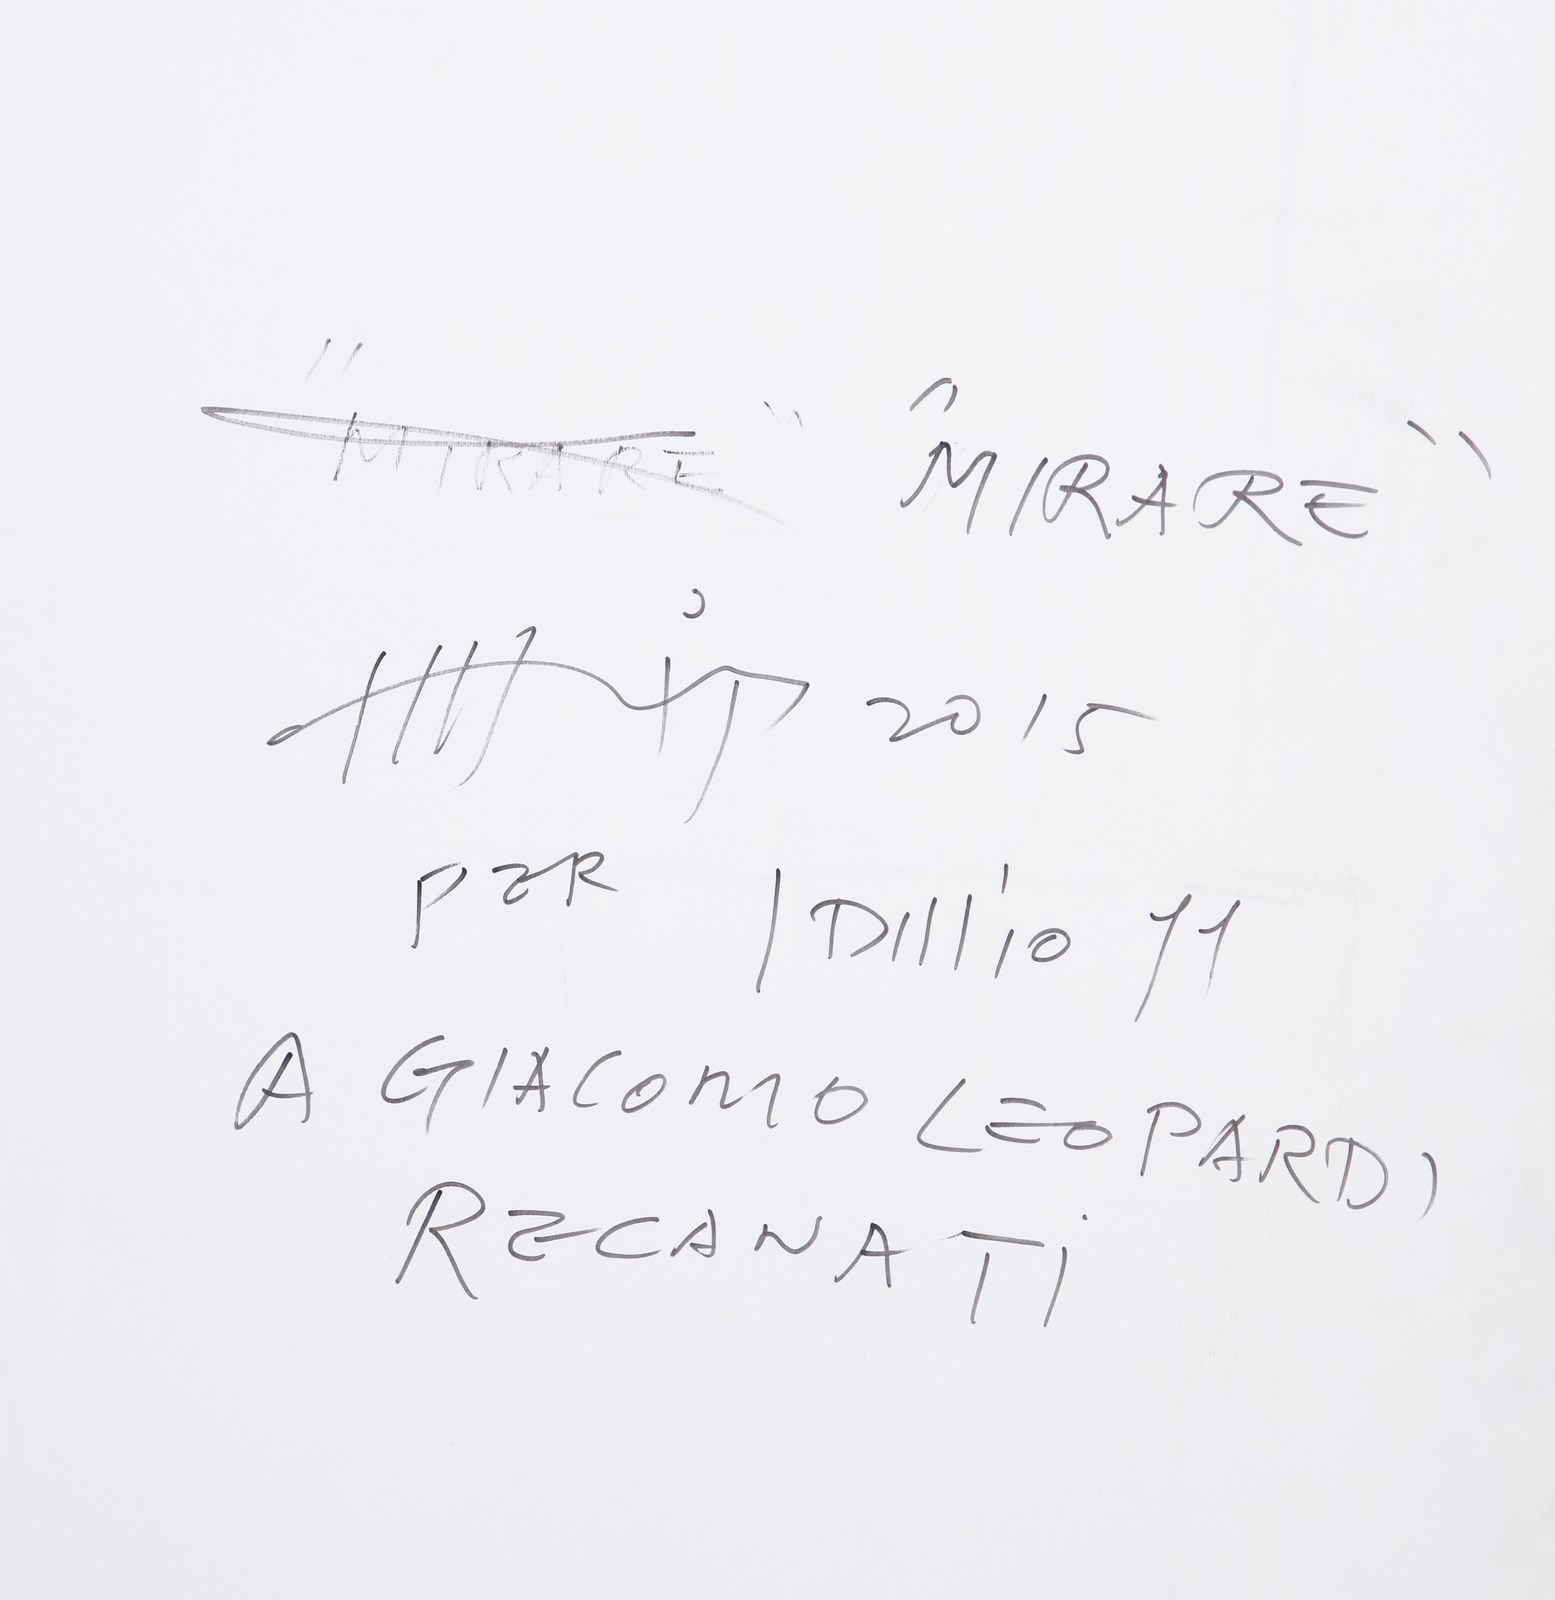 "MIRARE" "MIRARE"
2015
PER IDILLIO 11
A GIACOMO LEOPARDI
RECANATI